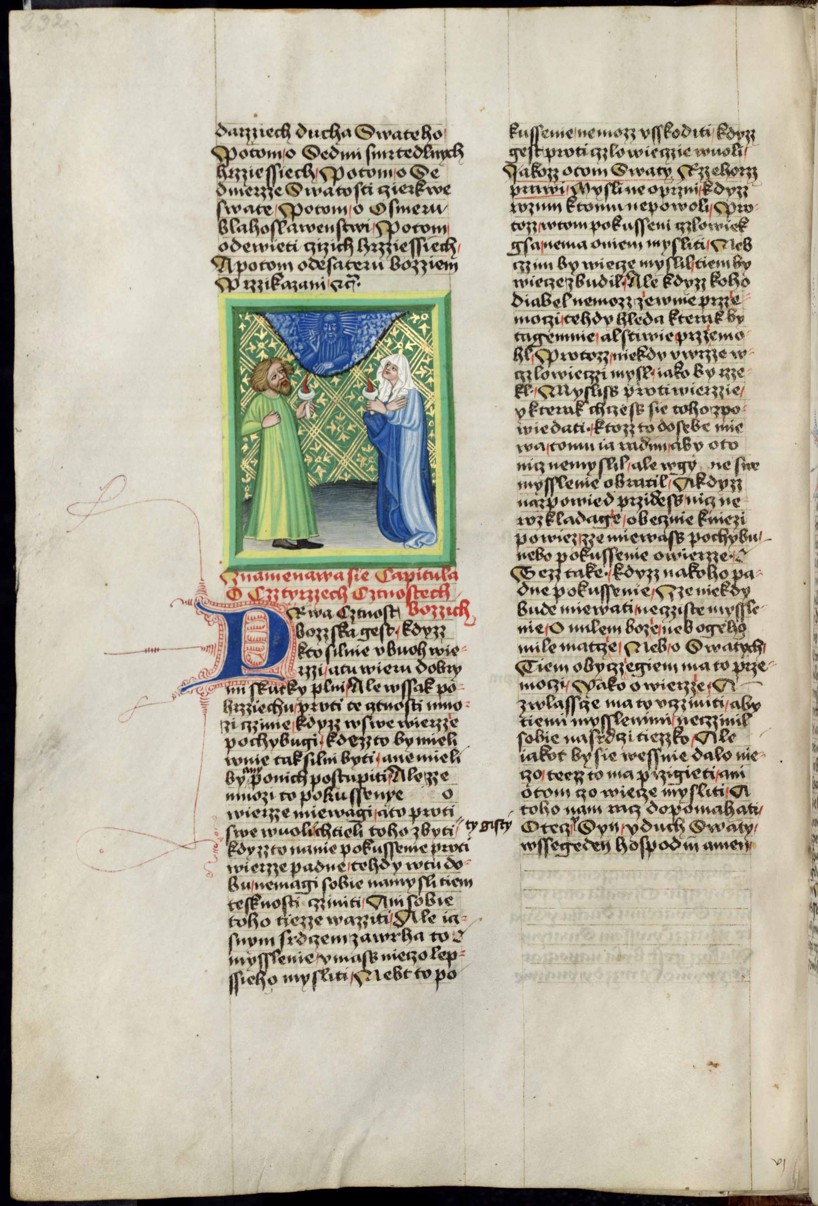 darziech ducha Swateho
Potom o Sedmi smrtedlnych
hrziessiech Potom o Se
dmerze Swatosti czierkwe
swate Potom o Osmeru
blahoslawenstwi Potom
odewieti czizich hrziessiech
A potom odesateru bozziem
Przikazani
Znamenawa sie Capitula
O Cztyrzech Cztnostech
bozzich
PRwa Cztnost
bozzska gest kdyzz
kto silnie vbuoh wie-
rzzi atu wieru dobry
mi skutky plni Ale wssak po-
hrziechu proti te cztnosti mno-
zi czinie kdyzz wswe wierzze
pochybugi kdezto by mieli
wnie tak silni byti ane mieli
by ponich postupiti Ale ze
mnozi to pokussenye o
wierzze miewagi ato proti
swe wuoli chtieli toho zbyti
ty gisty
kdyzz to nanie pokussenie proti
wierzze padne tehdy wtu do-
bu nemagi sobie namyslitiem
tesknosti cziniti Ani sobie
toho tiezze waziti Ale ia-
snym srdczem zawrha to
mysslenie vmass nieczo lep-
ssieho mysliti Nebt to po
kussenie nemozz vsskoditi kdyzz
gest proti czlowieczie wuoli
Jakozz otom Swaty Rzehorz
prawi Mysli ne oprzni kdyzz
rozum ktomu nepowoli Pro-
tozz wtom pokusseni czlowiek
gsa nema oniem mysliti Neb
czim by wiecze myslil tiem by
wiecze zbudil Ale kdyzz koho
diabel nemozz zewnie przze-
moczi tehdy hleda kterak by
tagemnie a lstiwie przzemo
hl Protozz niekdy vwrzze w-
czlowieczi mysl iako by rze-
kl Mysliss proti wierzzie
y kterak chczess sie toho zpo-
wiedati Ktozz to dosebe mie
wa tomu ia radim aby oto
nicz nemyslil ale wgy ne swe
mysslenie obratil A kdyzz
nazpowied przidess nicz ne
rozkladage obecznie kniezi
powiez zze miewass pochybu-
nebo pokussenie owierzze
Tezz take kdyzz nakoho pa-
dne pokussenie Zze niekdy
bude miewati neczziste myssle-
nie O milem boze neb ogeho
mile matcze Neb o Swatych
Tiem obyczegiem ma to prze-
moczi Yako o wierzze A
zwlasscze ma ty vcziniti aby
tiemi mysslenimi neczinil
sobie nasrdczi tiezzko Ale
iakot by sie wessnie dalo nie-
czo teezz to ma przigieti ani
otom czo wiecze mysliti A
toho nam racz dopomahati
Otecz Syn y duch Swaty
wssegeden hospodin amen